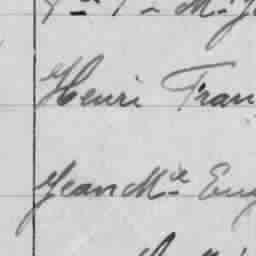 Henri Fran
Jean Mie Eug